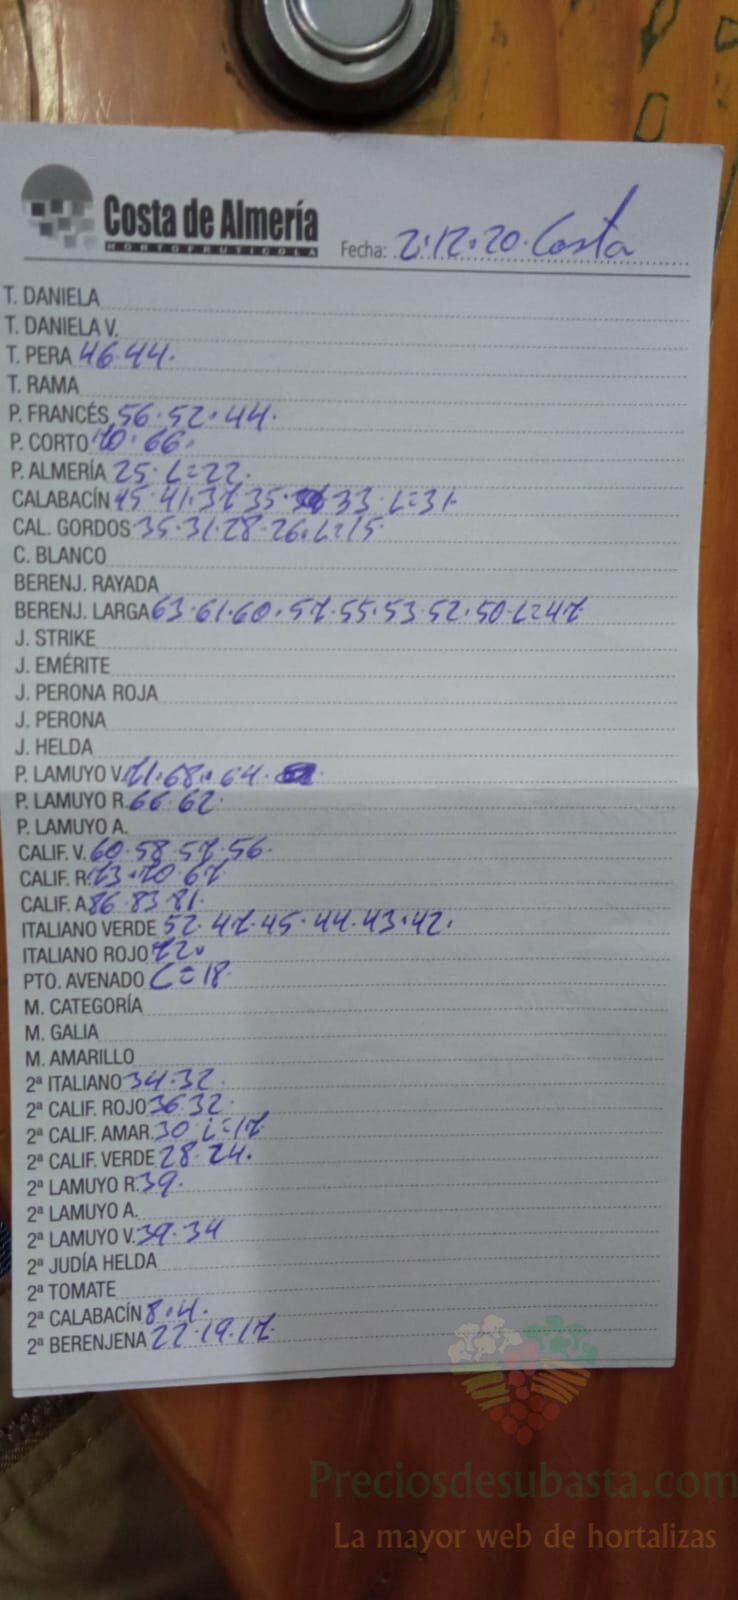 Costa de Almería
HORTOFRUTICOLA
Fecha: 2·12·20· Costa
T. DANIELA
T. DANIELA V.
T. PERA 46·44·
T. RAMA
P. FRANCÉS 56·52·44·
P. CORTO 70·66·
P. ALMERÍA 25·L=22·
CALABACÍN 45·41·37·35·33·L=31·
CAL. GORDOS 35·31·28·26·L=15
C. BLANCO
BERENJ. RAYADA
BERENJ. LARGA 63·61·60·57·55·53·52·50·L=47
J. STRIKE
J. EMÉRITE
J. PERONA ROJA
J. PERONA
J. HELDA
P. LAMUYO V. 71·68·64·
P. LAMUYO R. 66·62·
P. LAMUYO A.
CALIF. V. 60·58·57·56·
CALIF. R. 73·70·67
CALIF. A 86·83·81·
ITALIANO VERDE 52·47·45·44·43·42·
ITALIANO ROJO 72·
PTO. AVENADO L=18·
M. CATEGORÍA
M. GALIA
M. AMARILLO
2ª ITALIANO 34·32·
2ª CALIF. ROJO 36·32·
2ª CALIF. AMAR. 30·L=17
2ª CALIF. VERDE 28·24·
2ª LAMUYO R. 39·
2ª LAMUYO A.
2ª LAMUYO V. 39·34
2ª JUDÍA HELDA
2ª TOMATE
2ª CALABACÍN 8·4·
2ª BERENJENA 22·19·17
Preciosdesubasta.com
La mayor web de hortalizas